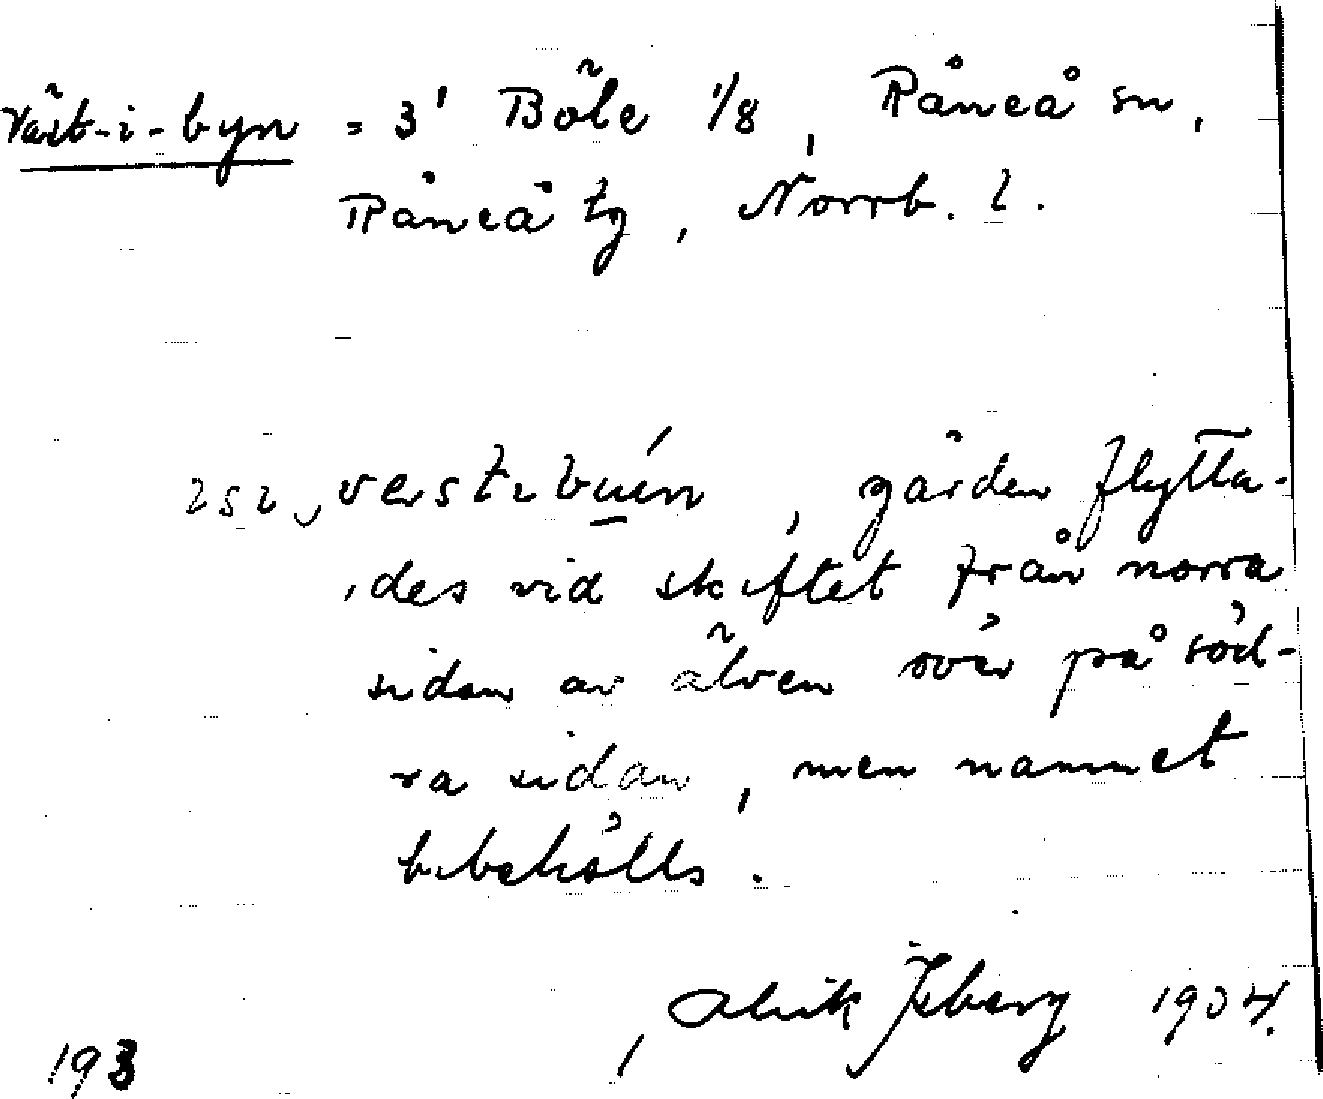 Väst-i-byn = 3' Böle 1/8, Råneå sn,
Råneå tg, Norrb. l.
verstibuén, gården flytta-
des vid skiftet från norra
sidan av älven över på söd-
ra sidan, men namnet
bibehölls.
Alrik Isberg 1904.
193